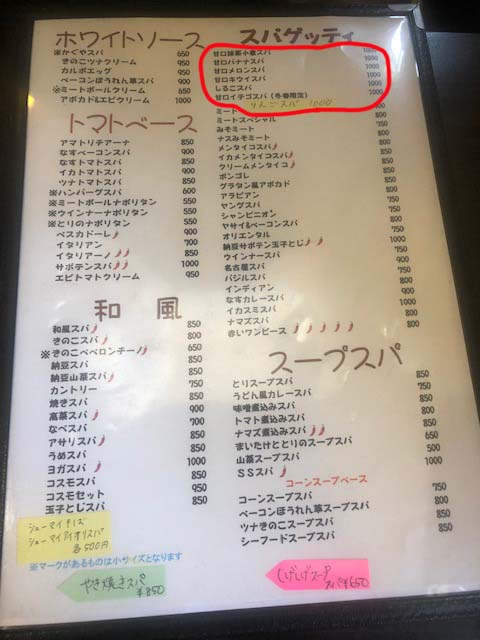 ホワイトソース
※かぐやスパ 650
きのこツナクリーム 950
カルボエッグ 950
ベーコンほうれん草スパ 900
※ミートボールクリーム 650
アボカド&エビクリーム 1000
トマトベース
アマトリチアーナ 850
なすベーコンスパ 900
なすトマトスパ 850
イカトマトスパ 900
ツナトマトスパ 850
※ハンバーグスパ 600
※ミートボールナポリタン
※ウインナーナポリタン
※とりのナポリタン
ペスカドーレ 900
イタリアン 700
イタリアーノ 850
サボテンスパ 1000
エビトマトクリーム 950
和風
和風スパ 850
きのこスパ 800
※きのこペペロンチーノ 650
納豆スパ
納豆山菜スパ
カントリー
焼きスパ
高菜スパ
なべスパ
アサリスパ
うめスパ
ヨガスパ
コスモスパ
コスモセット
玉子とじスパ 850
シューマイチーズ
シューマイアイオリスパ
各500円
※マークがあるものは小サイズとなります
やき焼きスパ
¥850
スパゲッティ
甘口抹茶小倉スパ 1000
甘口バナナスパ 1000
甘口メロンスパ 1000
甘口キウイスパ 1000
しるこスパ 1000
甘口イチゴスパ(冬春限定) 1000
りんごスパ 1000
ミート
ミートスペシャル
みそミート
ナスみそミート
メンタイコスパ
イカメンタイコスパ
クリームメンタイコ
ボンゴレ
グラタン風アボカド
アラビアン
ヤングスパ
シャンピニオン
ヤサイ&ベーコンスパ
オリエンタル
納豆サボテン玉子とじ
ウインナースパ
名古屋スパ
バジルスパ
インディアン
なすカレースパ
イカスミスパ
ナマズスパ
赤いワンピース
スープスパ
とりスープスパ 850
うどん風カレースパ
味噌煮込みスパ
トマト煮込スパ
ナマズ煮込みスパ
まいたけととりのスープスパ
山菜スープスパ
SSスパ
コーンスープベース
コーンスープスパ 750
ベーコンほうれん草スープスパ 800
ツナきのこスープスパ 850
シーフードスープスパ 850
げしげしスープ
スパ ¥650